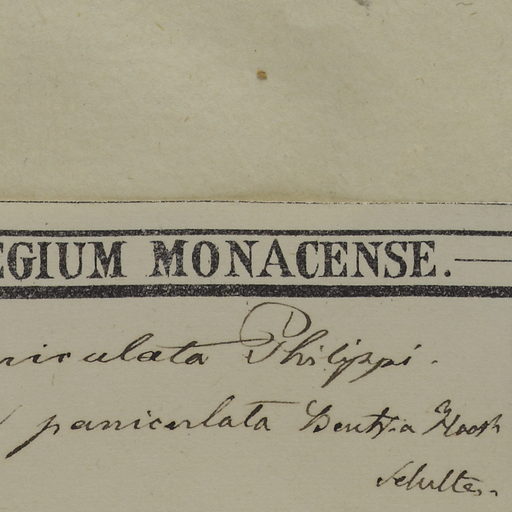 EGIUM MONACENSE.
niculata Philippi.
paniculata
Schultes.